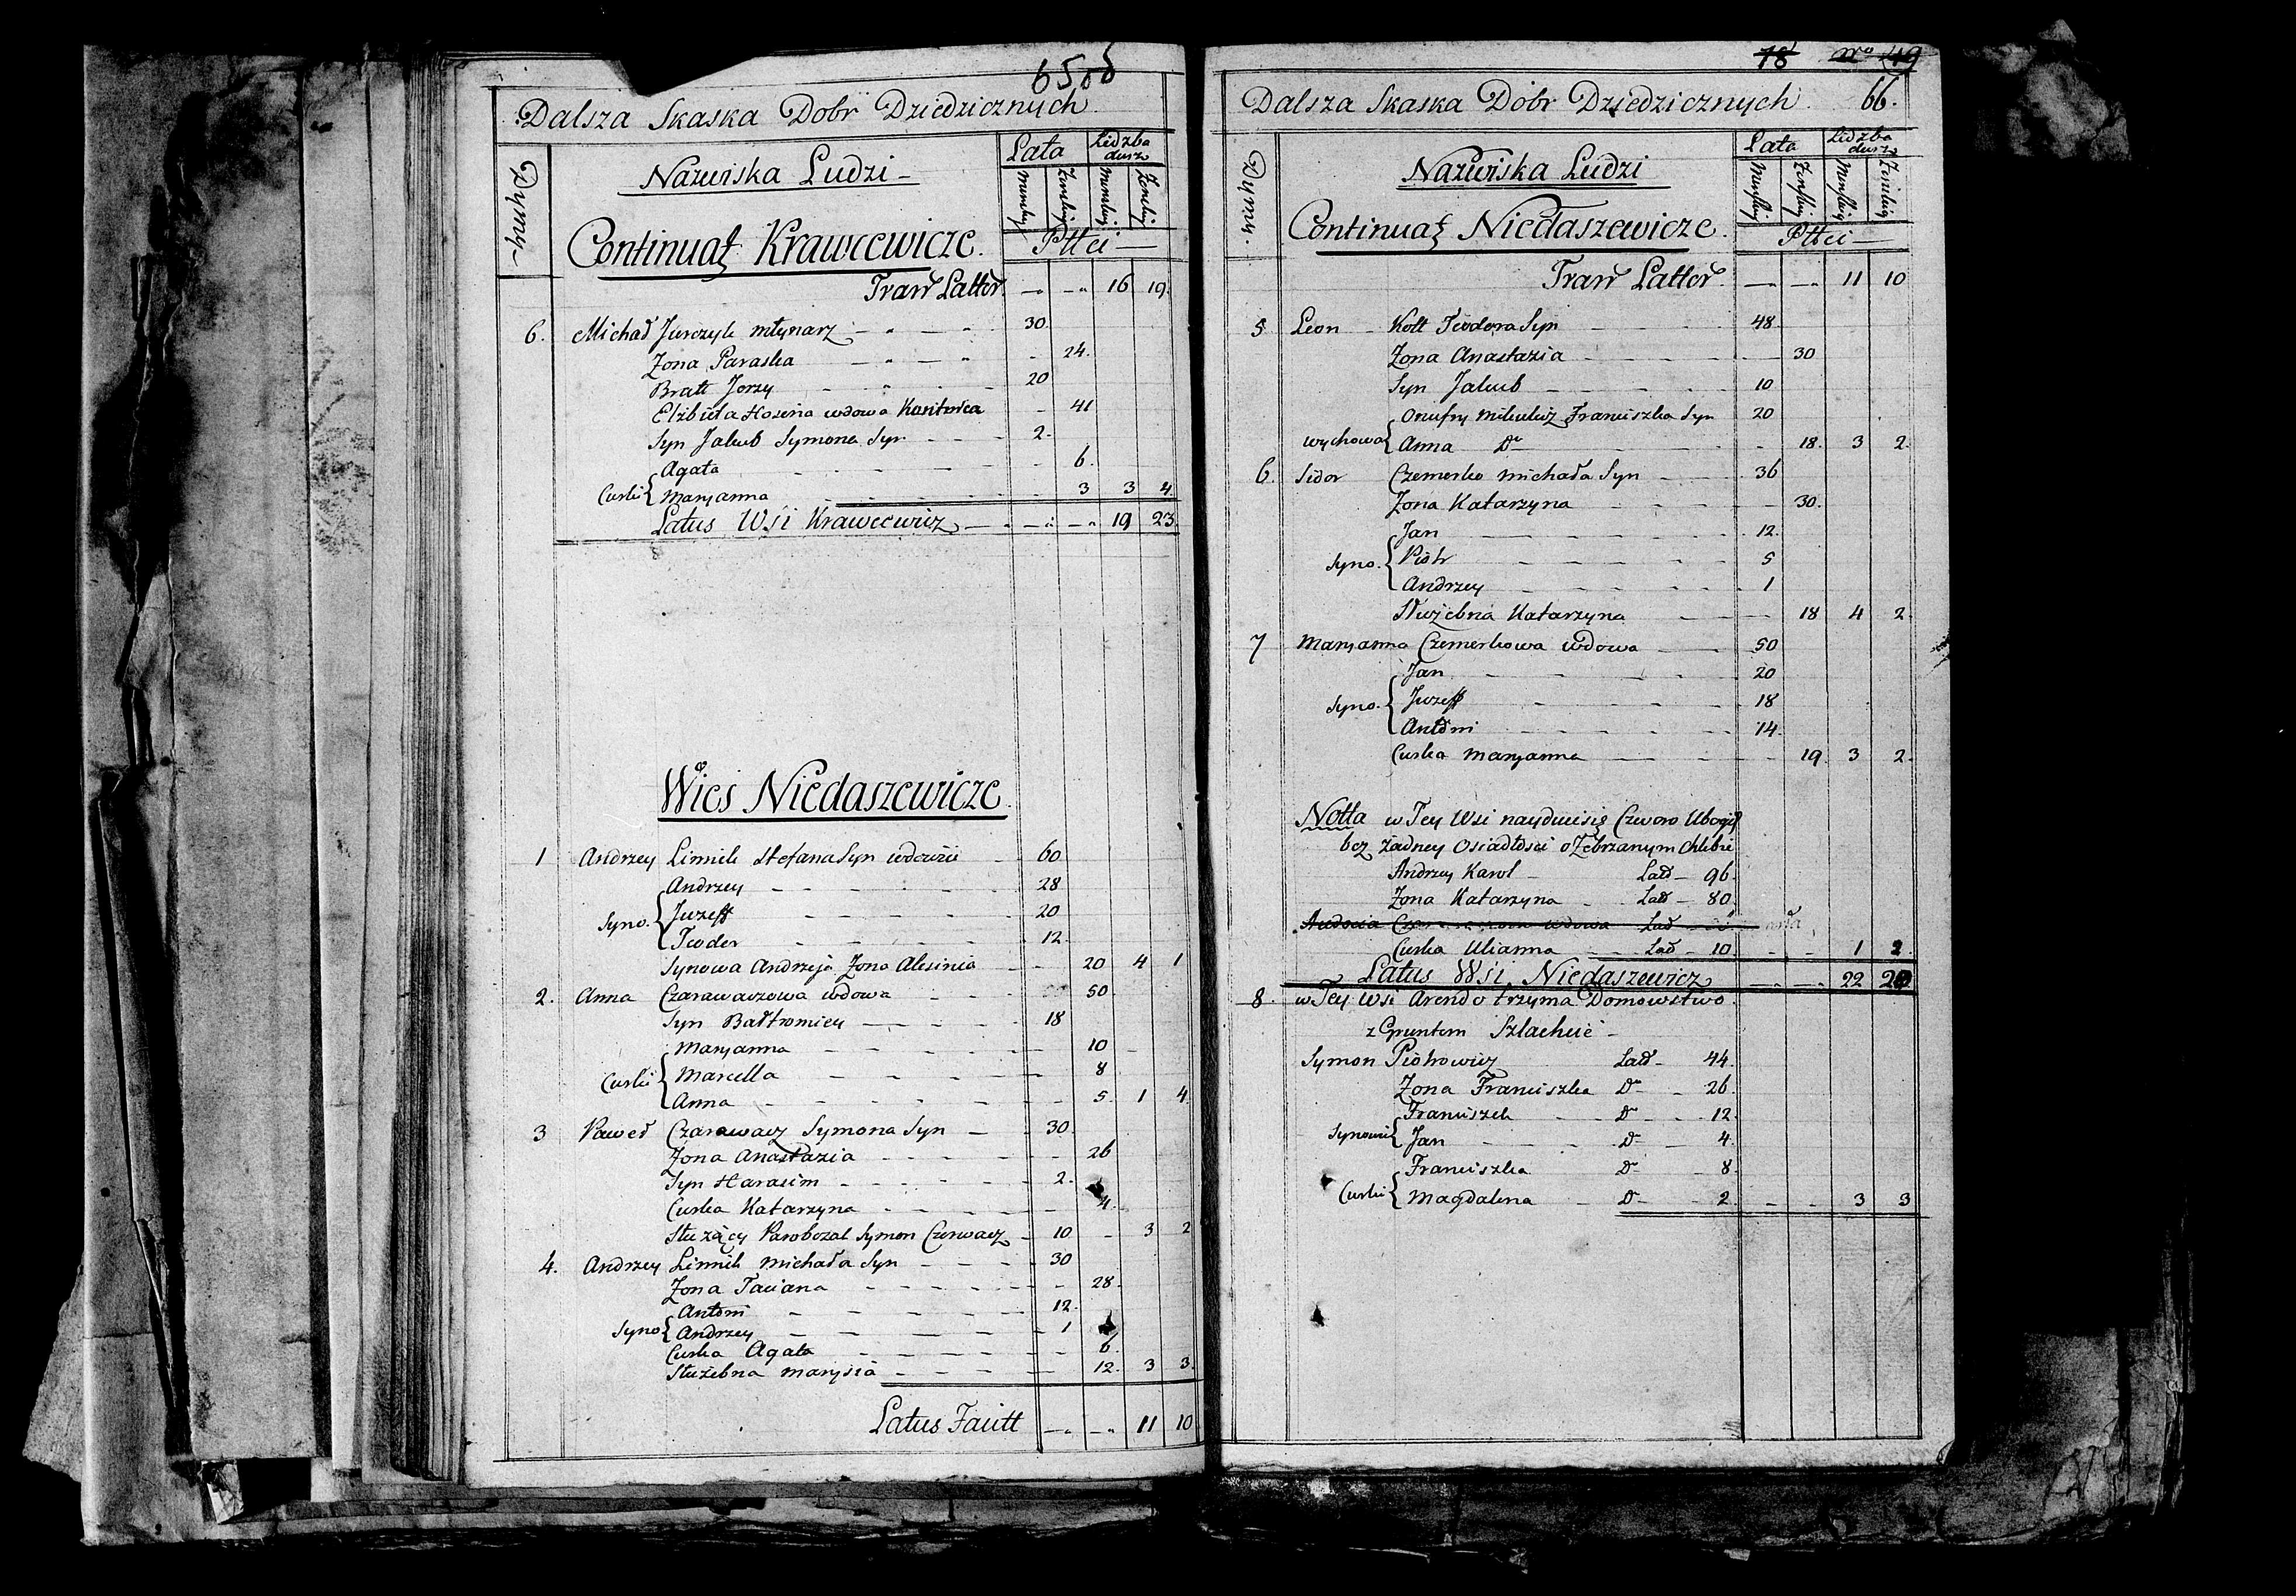 65 об
Dalsza Skaska Dobr Dziedzicznych
Dymy
Nazwiska Ludzi
Lata
Liczba dusz
Menskiey
Zenskiey
Menskiey
Zenskiey
Continuat: Krawcewicze.
Płłci
Tran Latter 16 19.
6. Michał Jurczyk młynarz 30
Zona Paraska 24.
Bratt Jorzy 20
Elżbieta wdowa 41
Syn Jakub Symona Syn 2.
Agata 6.
Curki Maryanna 3 3 4
Latus Wsi Krawcewicz 19 23
Wies Niedaszewicze
1 Andrzey Limik Stefana Syn wdowiec 60
Andrzey 28
Syno. Juzeff 20
Teodor 12
Synowa Andrzeja Zona Alesinia 20 4 1
2. Anna Czarawaczowa wdowa 50
Syn Bałtromiey 18
Maryanna 10
Curki Marcella 8
Anna 5. 1 4
3 Paweł Czarawacz Symona Syn 30
Zona Anastazia 26
Syn Harasim 2.
Curka Katarzyna 4.
Służący Parobczak Symon Czerwacz 10 3 2
4. Andrzey Limik Michała Syn 30
Zona Taciana 28
Antoni 12.
Syno Andrzey 1
Curka Agata 6.
Służebna Marysia 12. 3 3.
Latus Facitt 11 10
18 No 49
Dalsza Skaska Dobr Dziedzicznych 66.
Dymy.
Nazwiska Ludzi
Lata
Liczba dusz
Menskiey
Zenskiey
Menskiey
Zenskiey
Continuat: Niedaszewicze.
Płłci
Tran Latter. 11 10
5 Leon Kott Teodora Syn 48
Zona Anastazia 30
Syn Jakub 10
Onufry Mikulicz Franciszka Syn 20
wychowa Anna Do 18. 3 2.
6. Sidor Czemerko Michała Syn 36
Zona Katarzyna 30.
Jan 12.
Syno. Piotr 5
Andrzey 1
Służebna Katarzyna 18 4 2.
7 Maryanna Czemerkowa wdowa 50
Jan 20
Syno. Juzeff 18
Antoni 14.
Curka Maryanna 19. 3 2.
Notta w Tey Wsi nayduie się Czworo Ubogich
bez żadney Osiadłosci o Zebrzanym Chlebie
Andrzey Karol Latt 96.
Zona Katarzyna Latt 80
wdowa Latt
Curka Ulianna Latt 10 1 2.
Latus Wsi Niedaszewicz 22 20
8. w Tey Wsi Arendo trzyma Domowstwo
z Gruntem Szlachcic
Symon Piotrowicz Latt 44.
Zona Franciszka Do 26.
Franciszek Do 12.
Synowie Jan Do 4.
Franciszka Do 8.
Curki Magdalena Do 2 3 3